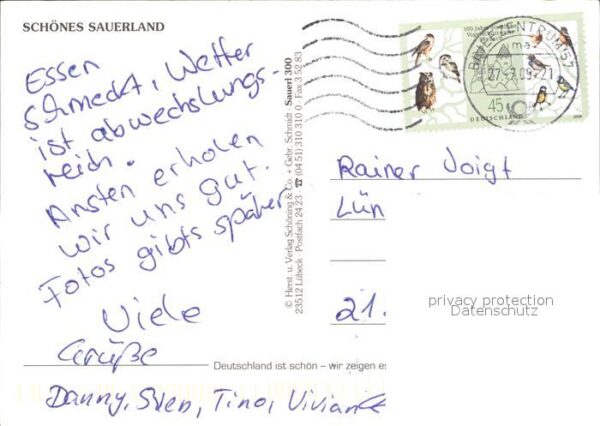 SCHÖNES SAUERLAND
Essen
schmeckt, Wetter
ist abwechslungs-
reich.
Ansten erholen
wir uns gut.
Fotos gibts später
Viele
Grüße
Danny, Sven, Tino, Vivian
Deutschland ist schön – wir zeigen es
© Herst. u. Verlag Schöning & Co. + Gebr. Schmidt · Sauerl 300
23512 Lübeck · Postfach 24 23 · ☎ (04 51) 310 310 0 · Fax 3 52 83
BRIEFZENTRUM 57
27.-7.09.-21
45
DEUTSCHLAND
Rainer Voigt
Lün
21.
privacy protection
Datenschutz